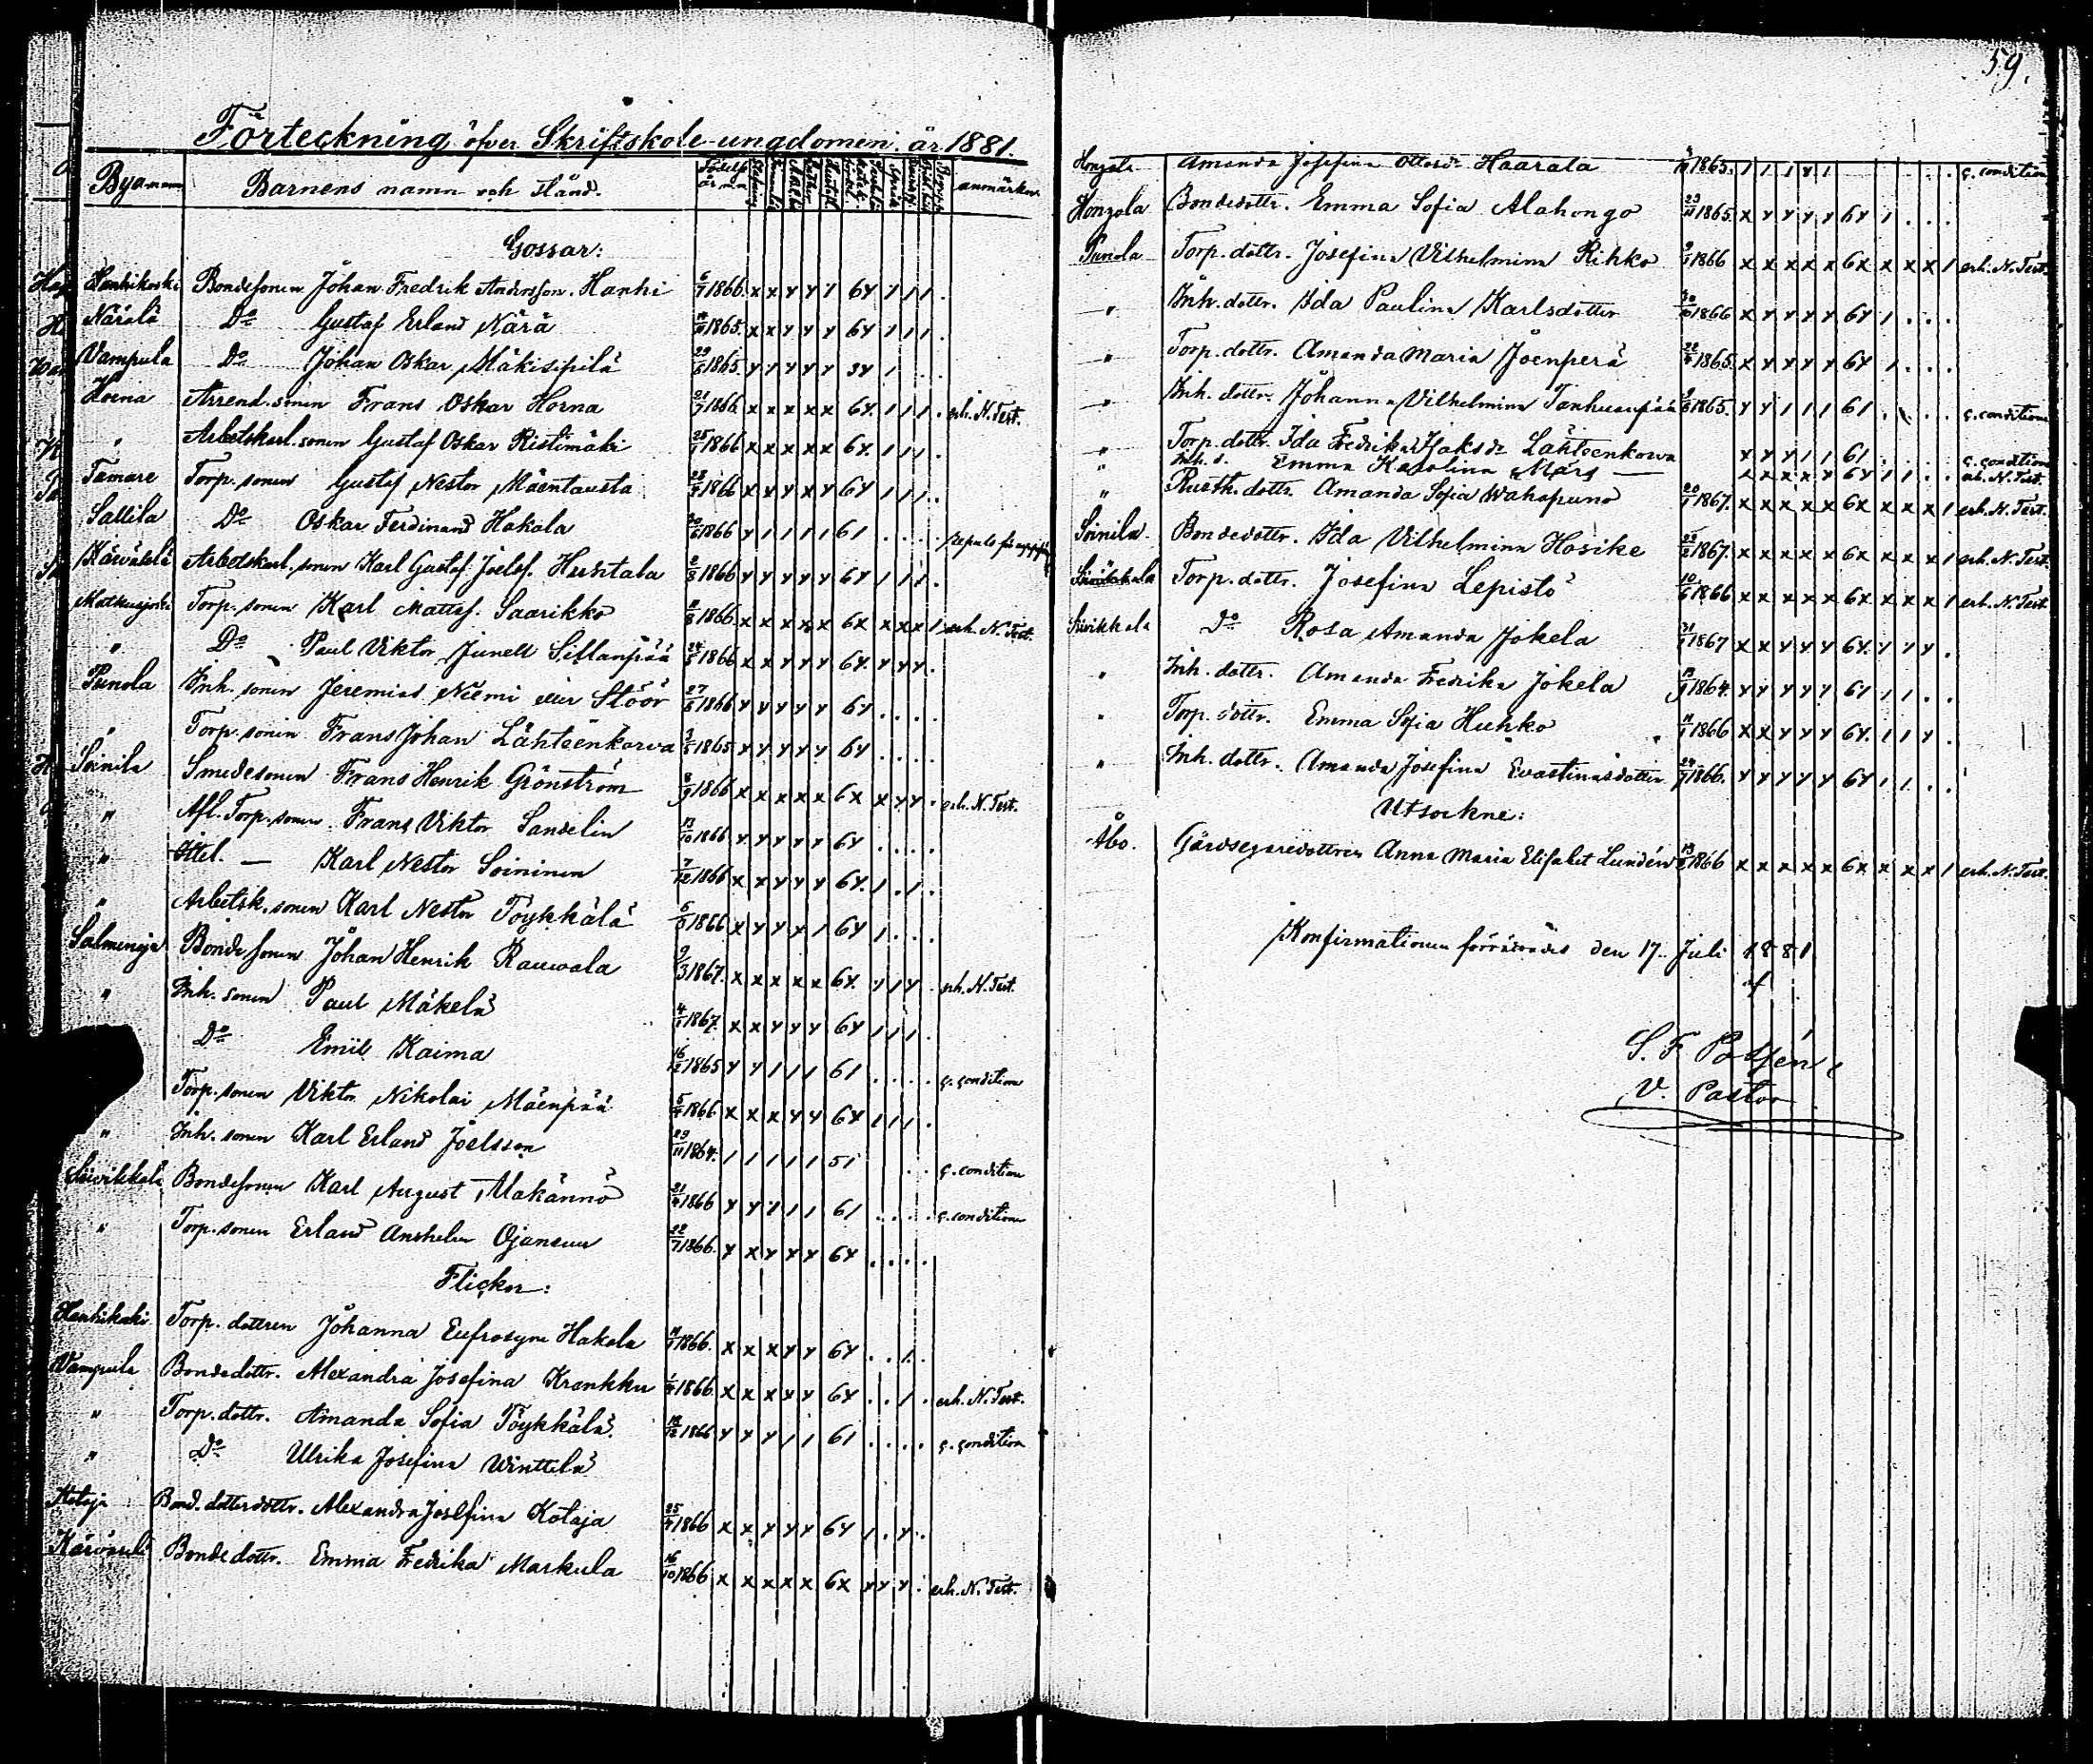 Förteckning öfver Skriftskole-ungdomen år 1881.
Byamamn Barnens namn och stånd. anmärkn.
Gossar:
Hanhikoski Bondesonen Johan Fredrik Andersson Hanhi 6/7 1866. x x y y y 6y 1 1 1 .
Närälä Do Gustaf Erland Närä 1865. x x y y y 6y 1 1 1
Vampula Do Johan Oskar Mäkisipilä 29/6 1865. y y y y y 3y 1 . .
Horna Arrend. sonen Frans Oskar Horna 21/7 1866. x x x x x 6y. 1 1 1 . erh. N. Test.
" Arbetskarl.sonen Gustaf Oskar Ristimäki 25/1 1866 x x x x x 6y. 1 1 1 .
Tamare Torp. sonen Gustaf Nestor Mäentausta 1866 x x y x y 6y 1 1 1 .
Sallila Do Oskar Ferdinand Hakala 1866 y 1 1 1 1 61 . . . .
Arbetskarl. sonen Karl Gustaf Joelsf. Huhtala 1866 y y y y y 6y 1 1 1 .
Matkusjoki Torp. sonen Karl Mattsf. Saarikko 1866. x x x x x 6x x x x 1 erh. N. Test.
" Do Paul Viktor Junell Sillanpää 1866 x x y y y 6y. y y y .
Punola Inh. sonen Jeremias Niemi eller Stöör 27/6 1866 y y y y y 6y . . . .
" Torp. sonen Frans Johan Lähteenkorva 1865 y y y y y 6y . . . .
Soinila Smedesonen Frans Henrik Grönström 8/9 1866 x x x x x 6x x y y . erh. N. Test.
" Afl. Torp. sonen Frans Viktor Sandelin 13/10 1866 y y y y y 6y . . . .
" — Karl Nestor Soininen 7/12 1866 x x y y y 6y. 1 . 1 .
" Arbetsk. sonen Karl Nestor Töykkälä 1866 x y y x 1 6y 1 . . .
Bondesonen Johan Henrik Rauwala 9/3 1867. x x x x x 6y. y 1 y . erh. N. Test.
" Inh. sonen Paul Mäkelä 4/1 1867. x x y y y 6y 1 1 1 .
Do Emil Kaima 16/12 1865 y y 1 1 1 61 . . . . g. condition
Torp. sonen Viktor Nikolai Mäenpää 1866 x x x y y 6y 1 1 1 .
" Inh. sonen Karl Erland Joelsson 29/11 1864. 1 1 1 1 1 51 . . g. condition
Siivikkala Bondesonen Karl August Alakännö 1866 y y 1 1 1 61 . . . . g. condition
" Torp. sonen Erland Anshelm Ojansuu 22/7 1866. y x y y y 6y . . . .
Flickor:
Hanhikoski Torp. dottren Johanna Eufrosyne Hakala 1866. x x x y y 6y . . 1 .
Vampula Bondedottr. Alexandra Josefina Krenkku 1866 x x x y y 6y . . 1 . erh. N. Test.
" Torp. dottr. Amanda Sofia Töykkälä 1866 y y y 1 1 61 . . . . g. condition
" Do Ulrika Josefina Winttelä
Kotaja Bond. dotterdottr. Alexandra Josefina Kotaja 25/4 1866 x x y y y 6y 1 . y .
Bondedottr. Emma Fredrika Markula 16/10 1866 x x x x x 6x y y y . erh. N. Test.
59.
Honzola Amanda Josefina Ottosdr Haarala 1865. 1 1 1 y 1 . . . g. condition
Honzola Bondedottr. Emma Sofia Alahongo 23/11 1865. x y y y y 6y 1 . . .
Punola Torp. dottr. Josefina Vilhelmina Rihko 9/1 1866 x x x x x 6x x x x 1 erh. N. Test.
" Inh. dottr. Ida Paulina Karlsdotter 1866 x y y y y 6y 1 . . .
" Torp. dottr. Amanda Maria Joenperä 1865. x y y y y 6y 1 . . .
" Inh. dottr. Johanna Vilhelmina Tanhuanpää 1865. y y 1 1 1 61 . . . g. condition
" Torp. dottr. Ida Fredrika Isaksdr Lähteenkorva y y y 1 1 61 . . . g. condition
" Inh. d. Emma Karolina Märs — x x x x y 6y 1 1 . . erh. N. Test.
" Rusth. dottr. Amanda Sofia Wahapuno 20/1 1867. x x x x x 6x x x x 1 erh. N. Test.
Soinila Bondedottr. Ida Vilhelmina Hosike 1867. x x x x x 6x x x x 1 erh. N. Test.
Torp. dottr. Josefina Lepistö 10/6 1866 x x x x x 6x x x x 1 erh. N. Test.
Siivikkala Do Rosa Amanda Jokela 1867 x x y y y 6y. y y y .
" Inh. dottr. Amanda Fredrika Jokela 1864. y y y y y 6y 1 1 . .
" Torp. dottr. Emma Sofia Huhko 1866 x x y y y 6y. 1 1 y .
" Inh. dottr. Amanda Josefina Evastinasdotter 1866. y y y y y 6y 1 1 . .
Utsockne:
Åbo. Gårdsegaredottren Anna Maria Elisabet Lundén 1866 x x x x x 6x x x x 1 erh. N. Test.
Konfirmationen förrättades den 17. Juli 1881
af
V. Pastor